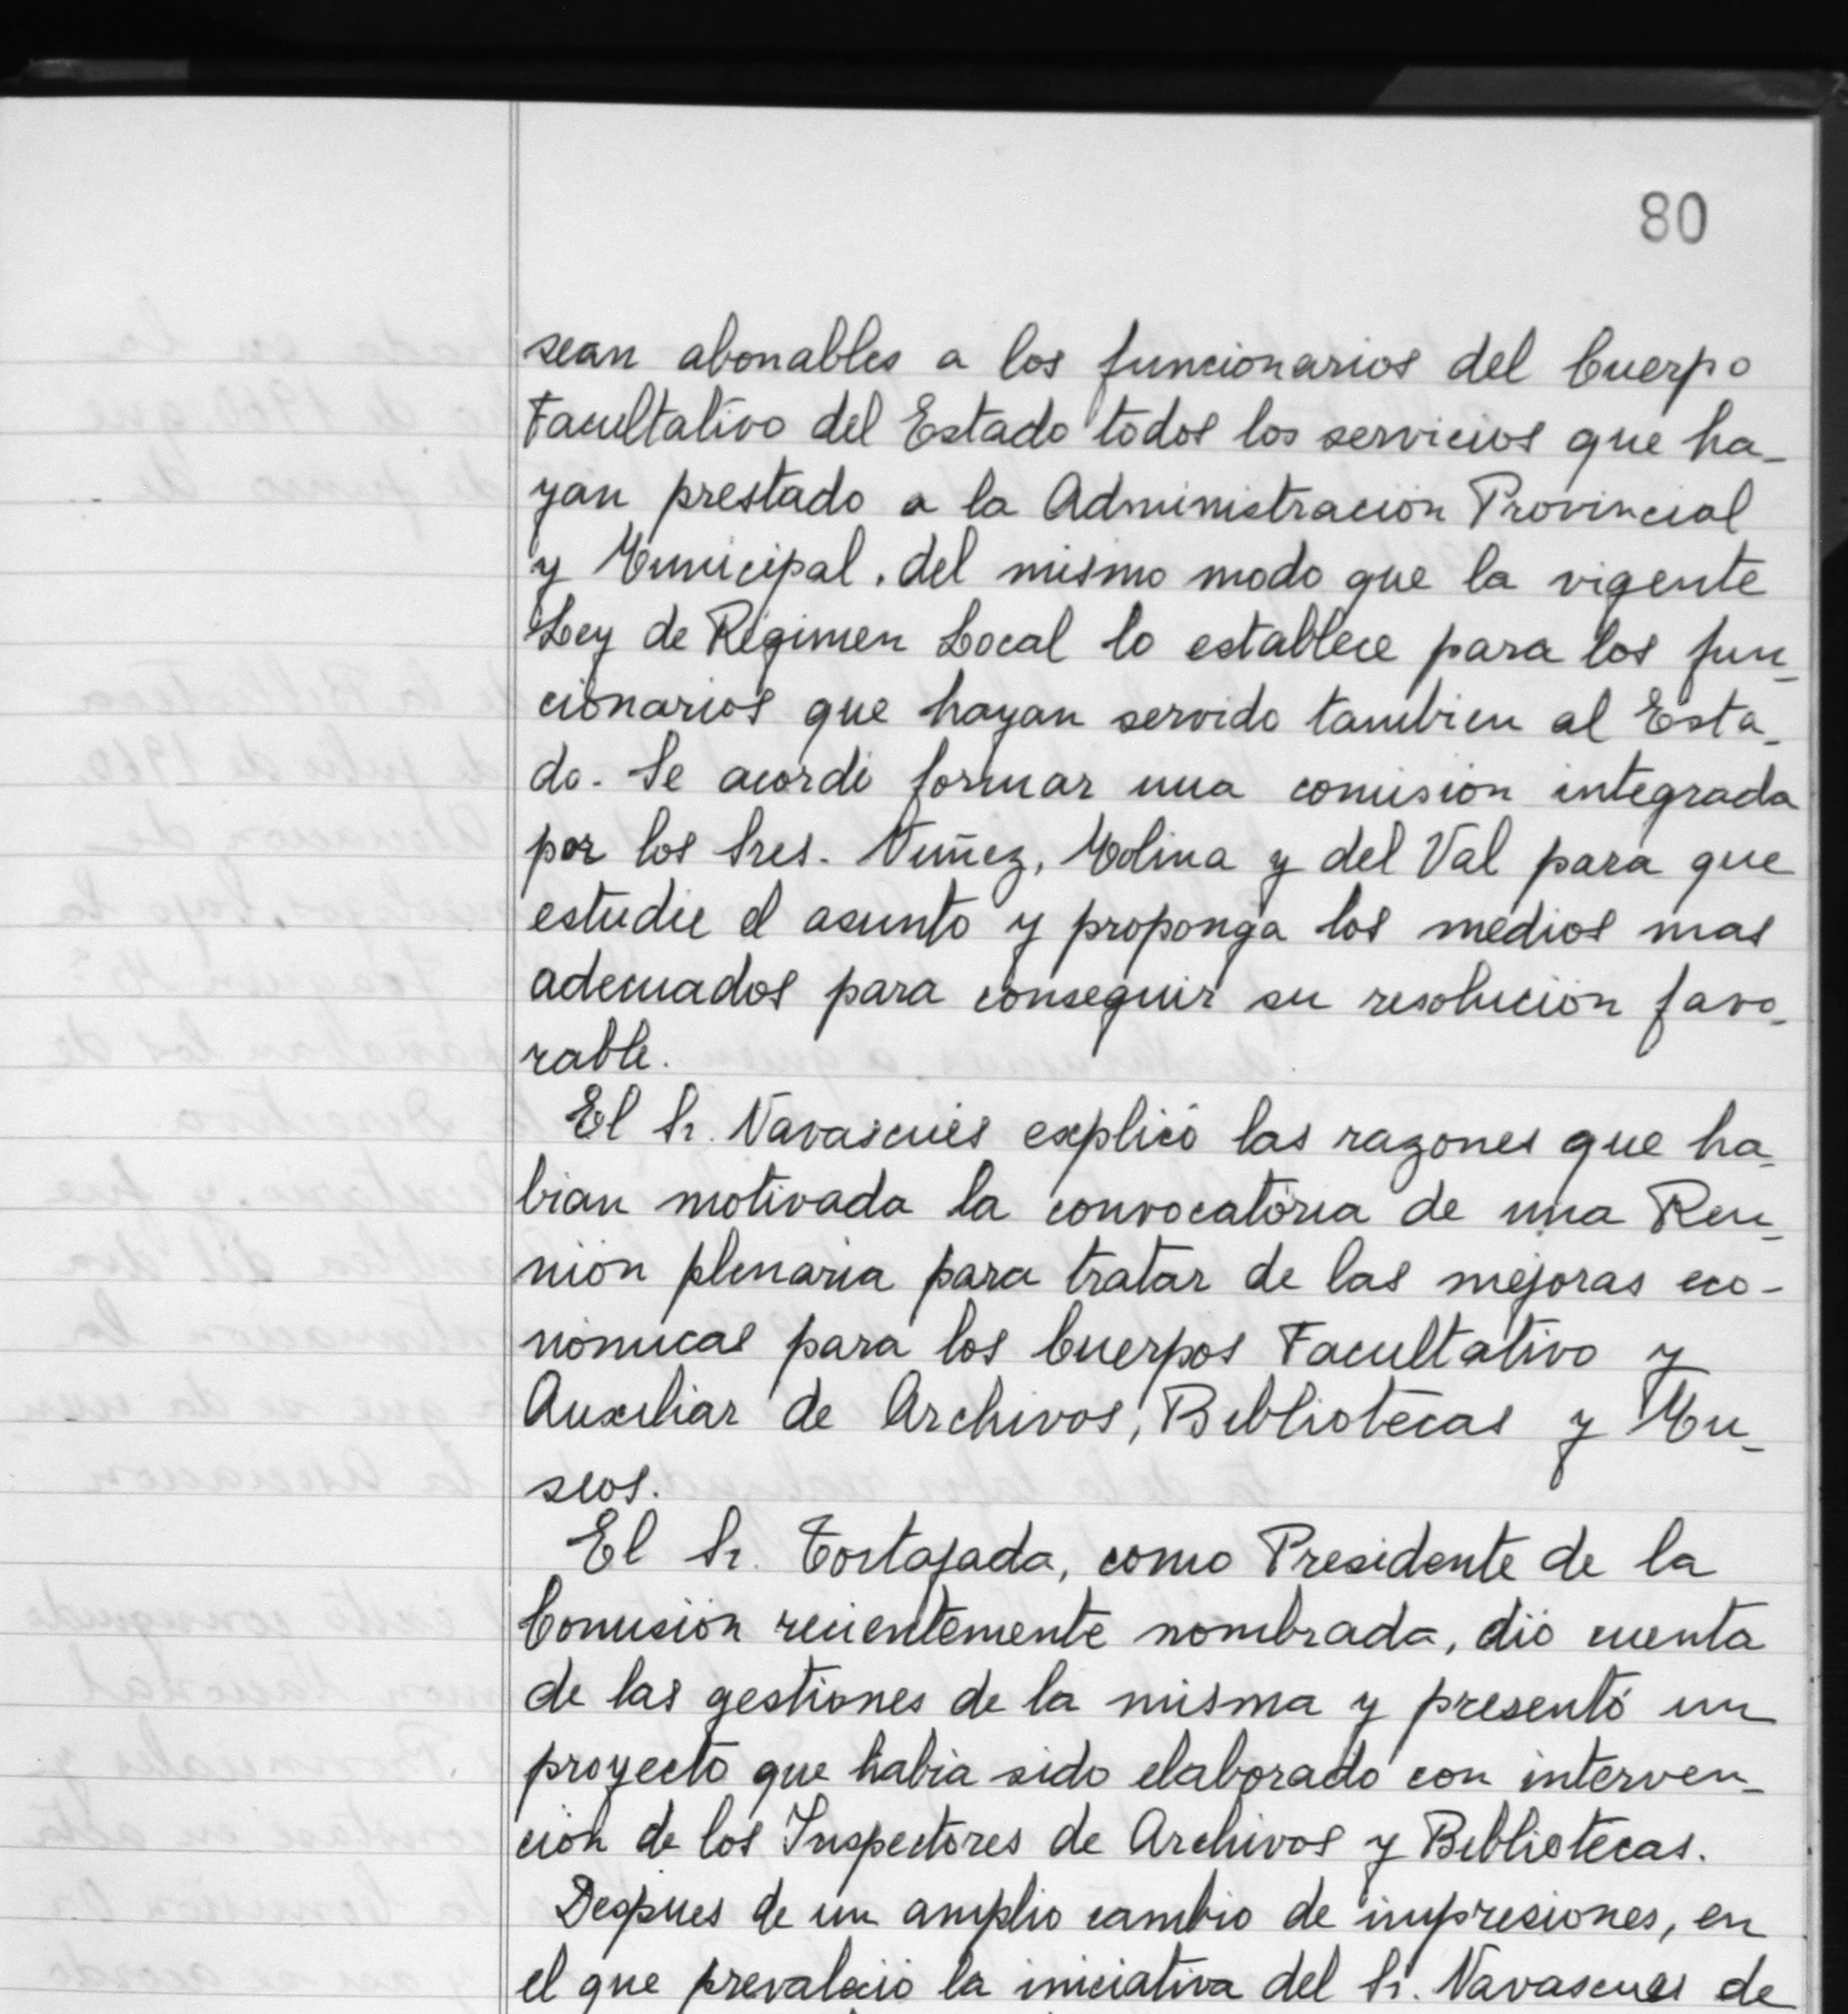 80
sean abonables a los funcionarios del Cuerpo
Facultativo del Estado todos los servicios que ha-
yan prestado a la Administración Provincial
y Municipal, del mismo modo que la vigente
Ley de Régimen Local lo establece para los fun-
cionarios que hayan servido tambien al Esta-
do. Se acordó formar una comisión integrada
por los Sres. Nuñez, Molina y del Val para que
estudie el asunto y proponga los medios mas
adecuados para conseguir su resolución favo-
rable.
El Sr. Navascués explicó las razones que ha-
bian motivada la convocatoria de una Reu-
nión plenaria para tratar de las mejoras eco-
nómicas para los Cuerpos Facultativo y
Auxiliar de Archivos, Bibliotecas y Mu-
seos.
El Sr. Tortajada, como Presidente de la
Comisión recientemente nombrada, dió cuenta
de las gestiones de la misma y presentó un
proyecto que habia sido elaborado con interven-
ción de los Inspectores de Archivos y Bibliotecas.
Despues de un amplio cambio de impresiones, en
el que prevaleció la iniciativa del Sr. Navascues de